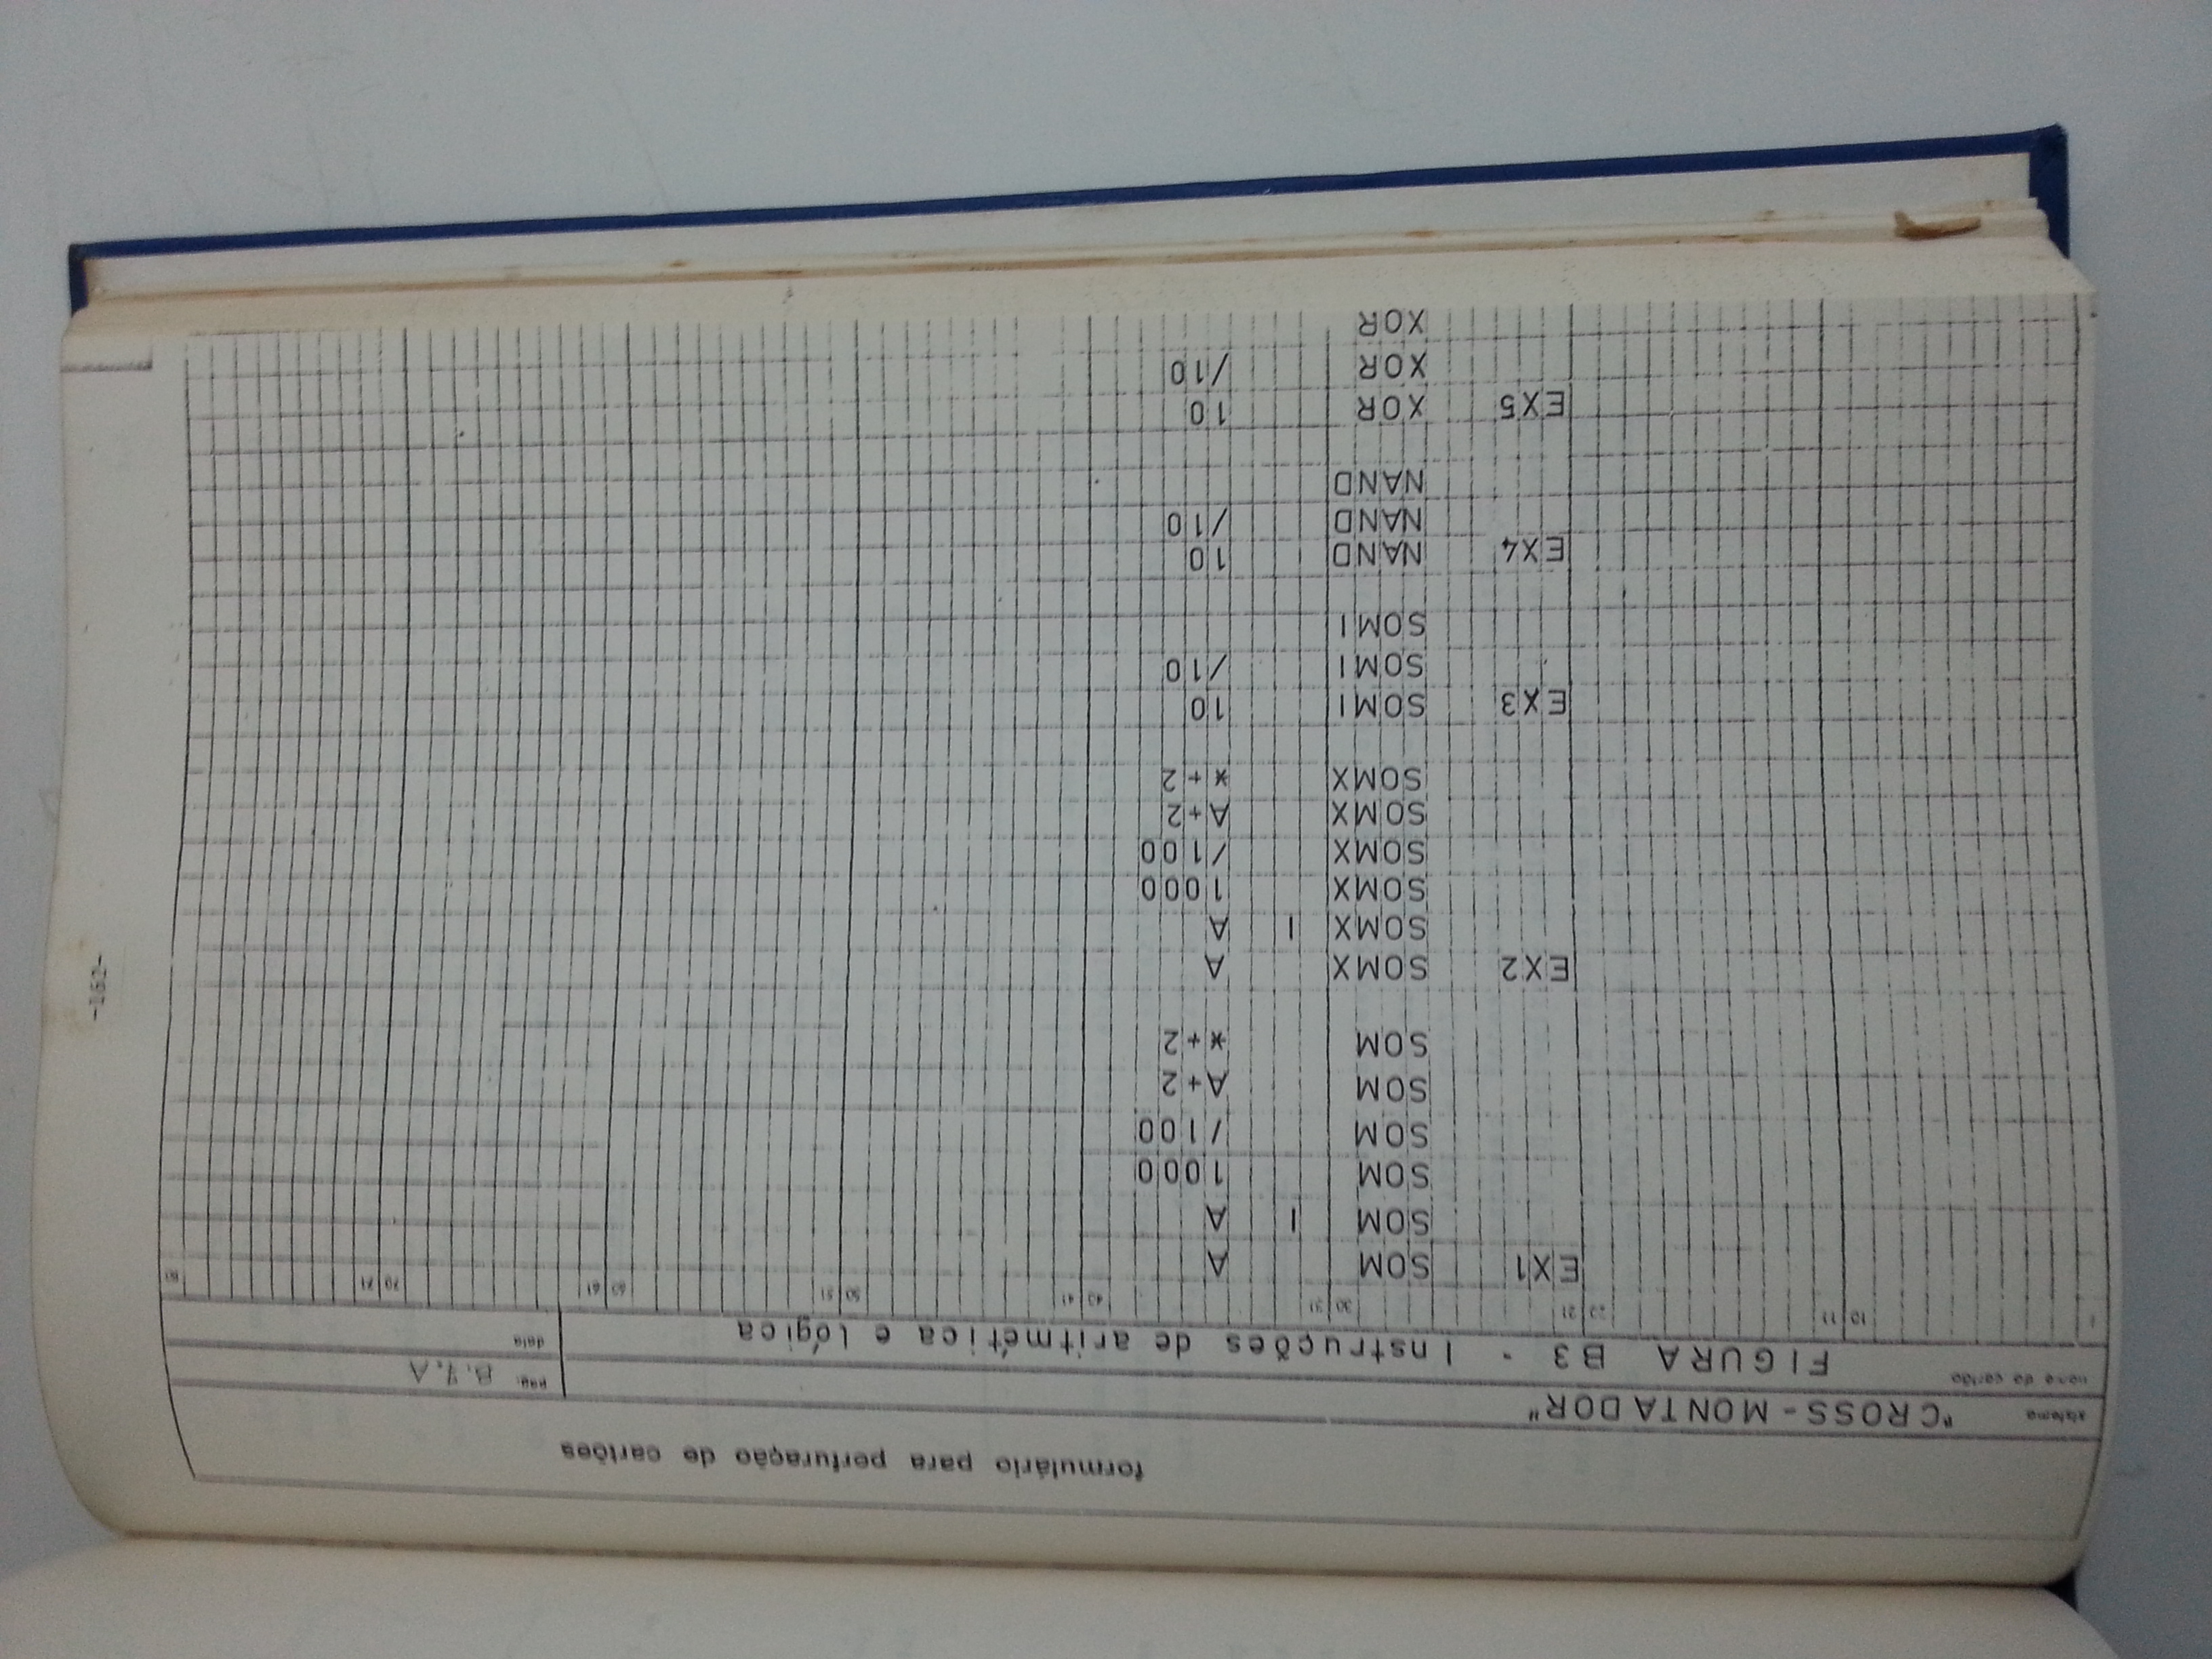 -162-
formulário para perfuração de cartões
sistema "CROSS-MONTADOR" pag:
nome do cartão FIGURA B3 - Instruções de aritmética e lógica data
1 10 11 20 21 30 31 40 41 50 51 60 61 70 71 80
EX1 SOM A
SOM I A
SOM 1000
SOM /100
SOM A+2
SOM *+2
EX2 SOMX A
SOMX I A
SOMX 1000
SOMX /100
SOMX A+2
SOMX *+2
EX3 SOMI 10
SOMI /10
SOMI
EX4 NAND 10
NAND /10
NAND
EX5 XOR 10
XOR /10
XOR